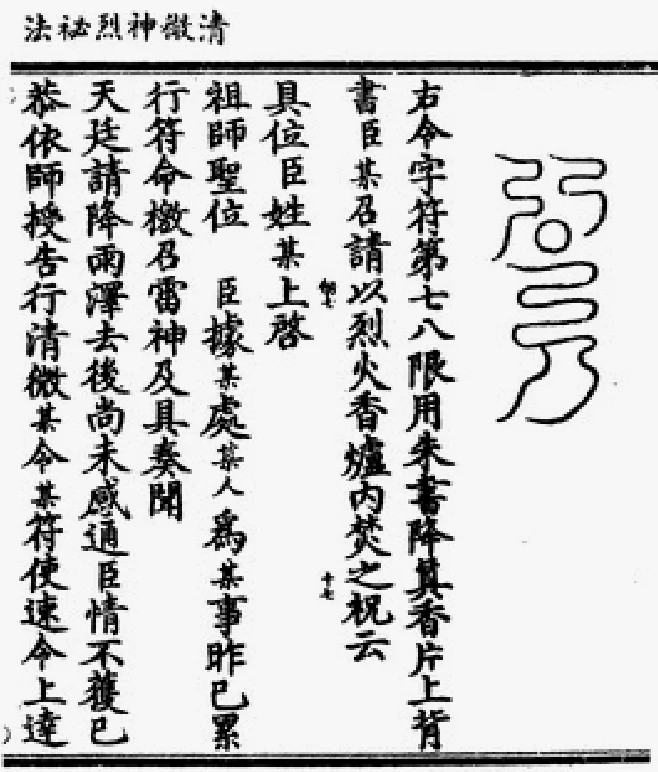 清微神烈祕法
右令字符第七八限用朱書降真香片上背
書臣某召請以烈火香爐内焚之祝云
具位臣姓某上啓
祖師聖位 臣據某處某人為某事昨已累
行符命檄召雷神及具奏聞
天廷請降雨澤去後尚未感通臣情不獲已
恭依師授告行清微某令某符使速令上達
十七